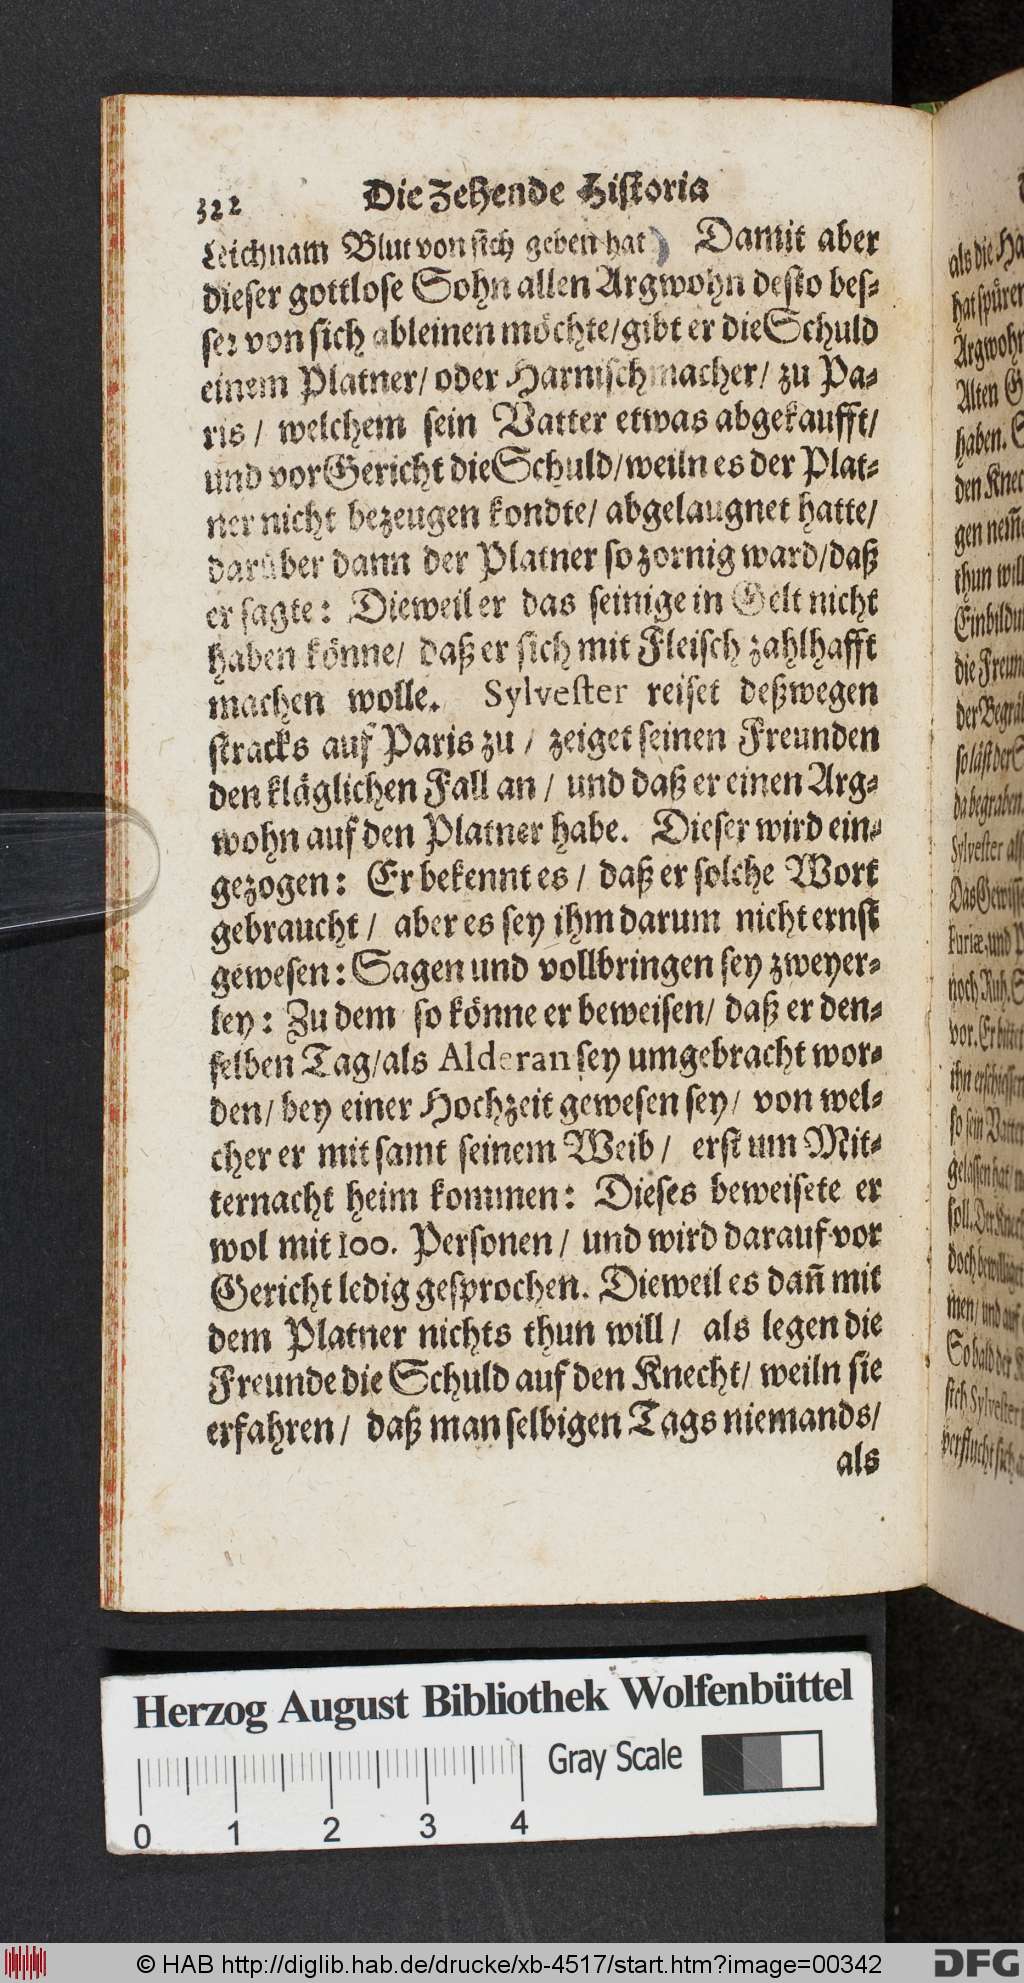 322 Die Zehende Historia
Leichnam Blut von sich geben hat) Damit aber
dieser gottlose Sohn allen Argwohn desto bes-
ser von sich ableinen möchte/gibt er die Schuld
einem Platner/ oder Harnischmacher/ zu Pa-
ris / welchem sein Vatter etwas abgekaufft/
und vor Gericht die Schuld/weiln es der Plat-
ner nicht bezeugen kondte/ abgelaugnet hatte/
darüber dann der Platner so zornig ward/daß
er sagte: Dieweil er das seinige in Gelt nicht
haben könne/ daß er sich mit Fleisch zahlhafft
machen wolle. Sylvester reiset deßwegen
stracks auf Paris zu / zeiget seinen Freunden
den kläglichen Fall an / und daß er einen Arg-
wohn auf den Platner habe. Dieser wird ein-
gezogen: Er bekennt es / daß er solche Wort
gebraucht / aber es sey ihm darum nicht ernst
gewesen: Sagen und vollbringen sey zweyer-
ley: Zu dem so könne er beweisen/ daß er den-
selben Tag/als Alderan sey umgebracht wor-
den/ bey einer Hochzeit gewesen sey/ von wel-
cher er mit samt seinem Weib / erst um Mit-
ternacht heim kommen: Dieses beweisete er
wol mit 100. Personen / und wird darauf vor
Gericht ledig gesprochen. Dieweil es dañ mit
dem Platner nichts thun will / als legen die
Freunde die Schuld auf den Knecht/ weiln sie
erfahren / daß man selbigen Tags niemands/
als
als die
hat spüren
Argwohn
Alten
haben.
den Knec
gen nem̃e
thun will
Einbildu
die Freun
der Begräb
so läst der
da begraben
Sylvester
Das Gewiss
furiæ und
noch Ruh.
vor. Er bittet
ihn erschiessen
so sein Vatter
gelassen hat
soll. Der Knecht
doch bewilliget
men / und auf
So bald der
sich Sylvester
Herzog August Bibliothek Wolfenbüttel
Gray Scale
0 1 2 3 4
© HAB http://diglib.hab.de/drucke/xb-4517/start.htm?image=00342
DFG